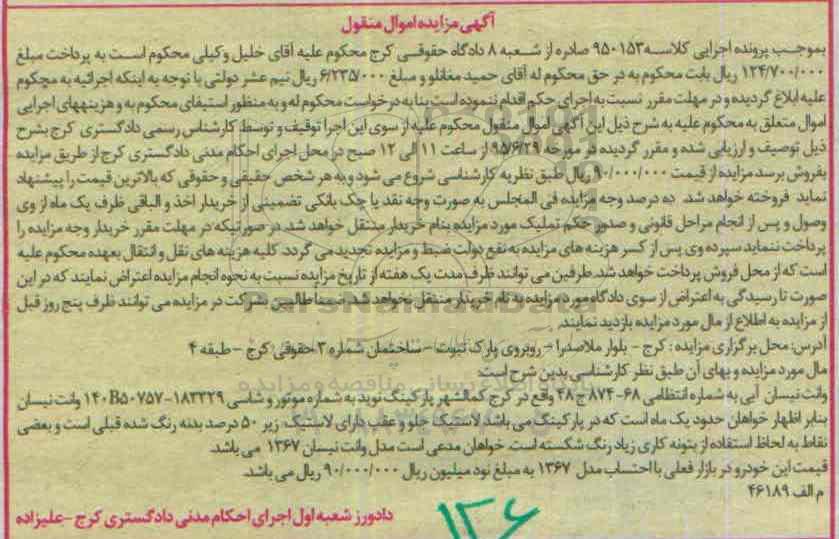 آگهی مزایده اموال منقول
بموجب پرونده اجرایی کلاسه ۹۵۰۱۵۳ صادره از شعبه ۸ دادگاه حقوقی کرج محکوم علیه آقای خلیل وکیلی محکوم است به پرداخت مبلغ
۱۲۴/۷۰۰/۰۰۰ ریال بابت محکوم به در حق محکوم له آقای حمید مغانلو و مبلغ ۶/۲۳۵/۰۰۰ ریال نیم عشر دولتی با توجه به اینکه اجرائیه به محکوم
علیه ابلاغ گردیده و در مهلت مقرر نسبت به اجرای حکم اقدام ننموده است بنا به درخواست محکوم له و به منظور استیفای محکوم به و هزینههای اجرایی
اموال متعلق به محکوم علیه به شرح ذیل این آگهی اموال منقول محکوم علیه از سوی این اجرا توقیف و توسط کارشناس رسمی دادگستری کرج بشرح
ذیل توصیف و ارزیابی شده و مقرر گردیده در مورخه ۹۵/۶/۲۹ از ساعت ۱۱ الی ۱۲ صبح در محل اجرای احکام مدنی دادگستری کرج از طریق مزایده
بفروش برسد مزایده از قیمت ۹۰/۰۰۰/۰۰۰ ریال طبق نظریه کارشناسی شروع می شود و به هر شخص حقیقی و حقوقی که بالاترین قیمت را پیشنهاد
نماید فروخته خواهد شد. ده درصد وجه مزایده فی المجلس به صورت وجه نقد یا چک بانکی تضمینی از خریدار اخذ و الباقی ظرف یک ماه از وی
وصول و پس از انجام مراحل قانونی و صدور حکم تملیک مورد مزایده بنام خریدار منتقل خواهد شد. در صورتیکه در مهلت مقرر خریدار وجه مزایده را
پرداخت ننماید سپرده وی پس از کسر هزینه های مزایده به نفع دولت ضبط و مزایده تجدید می گردد. کلیه هزینه های نقل و انتقال بعهده محکوم علیه
است که از محل فروش پرداخت خواهد شد. طرفین می توانند ظرف مدت یک هفته از تاریخ مزایده نسبت به نحوه انجام مزایده اعتراض نمایند که در این
صورت تا رسیدگی به اعتراض از سوی دادگاه مورد مزایده به نام خریدار منتقل نخواهد شد. ضمنا طالبین شرکت در مزایده می توانند ظرف پنج روز قبل
از مزایده به اطلاع از مال مورد مزایده بازدید نمایند.
آدرس: محل برگزاری مزایده : کرج - بلوار ملاصدرا - روبروی پارک نبوت - ساختمان شماره ۳ حقوقی کرج - طبقه ۴
مال مورد مزایده و بهای آن طبق نظر کارشناسی بدین شرح است:
وانت نیسان آبی به شماره انتظامی ۶۸-۸۷۴ج۴۸ واقع در کرج کمالشهر پارکینگ نوید به شماره موتور و شاسی ۱۸۳۳۲۹-۱۴۰B۵۰۷۵۷ وانت نیسان
بنابر اظهار خواهان حدود یک ماه است که در پارکینگ می باشد. لاستیک جلو و عقب دارای لاستیک زیر ۵۰ درصد بدنه رنگ شده قبلی است و بعضی
نقاط به لحاظ استفاده از بتونه کاری زیاد رنگ شکسته است. خواهان مدعی است مدل وانت نیسان ۱۳۶۷ می باشد.
قیمت این خودرو در بازار فعلی با احتساب مدل ۱۳۶۷ به مبلغ نود میلیون ریال ۹۰/۰۰۰/۰۰۰ ریال می باشد.
م الف ۴۶۱۸۹
دادورز شعبه اول اجرای احکام مدنی دادگستری کرج - علیزاده
۱۲۶
ParsNamadData